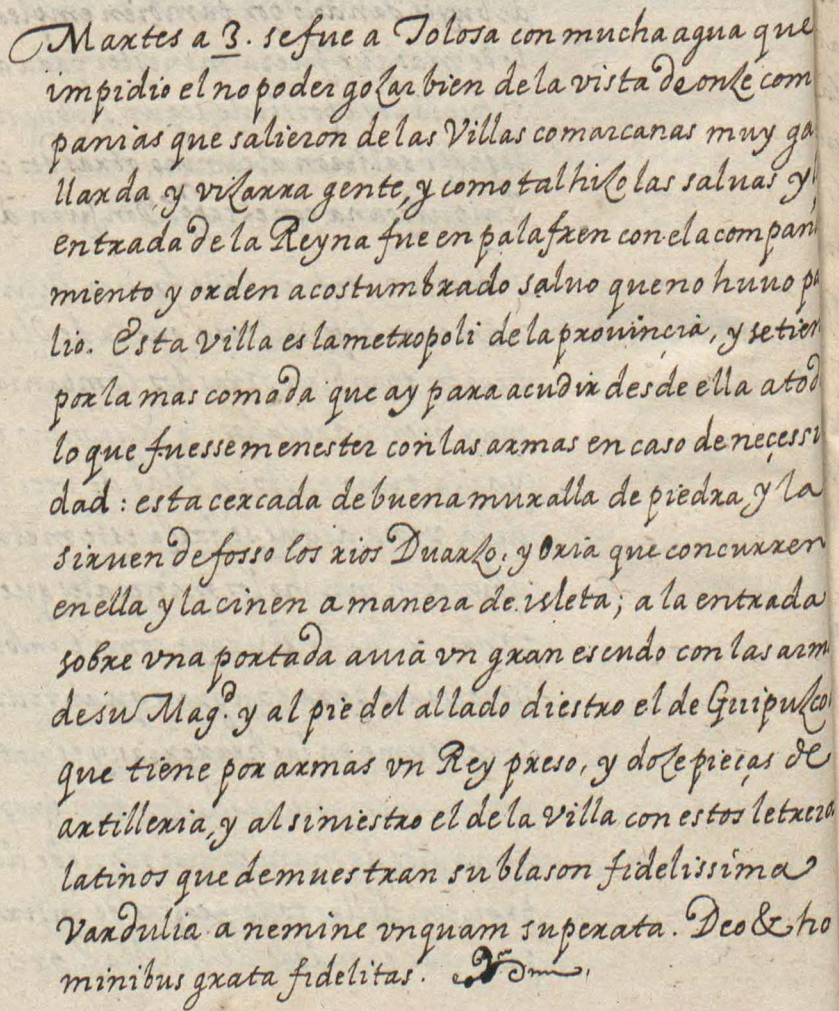 Martes a 3. se fue a Tolosa con mucha agua que
impidio el no poder gozar bien de la vista de onze com
panias que salieron de las Villas comarcanas muy ga
llarda, y vizarra gente, y como tal hizo las salvas y
entrada de la Reyna fue en palafren con el acompan
miento y orden acostumbrado salvo que no huuo pa
lio. Esta villa es la metropoli de la prouincia, y se tien
por la mas comoda que ay para acudir desde ella a tod
lo que fuesse menester con las armas en caso de neçessi
dad: esta cercada de buena muralla de piedra y la
siruen de fosso los rios Duarzo, y Oria que concurren
en ella y la cinen a manera de isleta; a la entrada
sobre vna portada auia vn gran escudo con las arm
de su Mag.d y al pie del al lado diestro el de Guipuzco
que tiene por armas vn Rey preso, y doze pieças de
artilleria, y al siniestro el de la villa con estos letrero
latinos que demuestran su blason fidelissima
Vardulia a nemine vnquam superata. Deo & ho
minibus grata fidelitas.